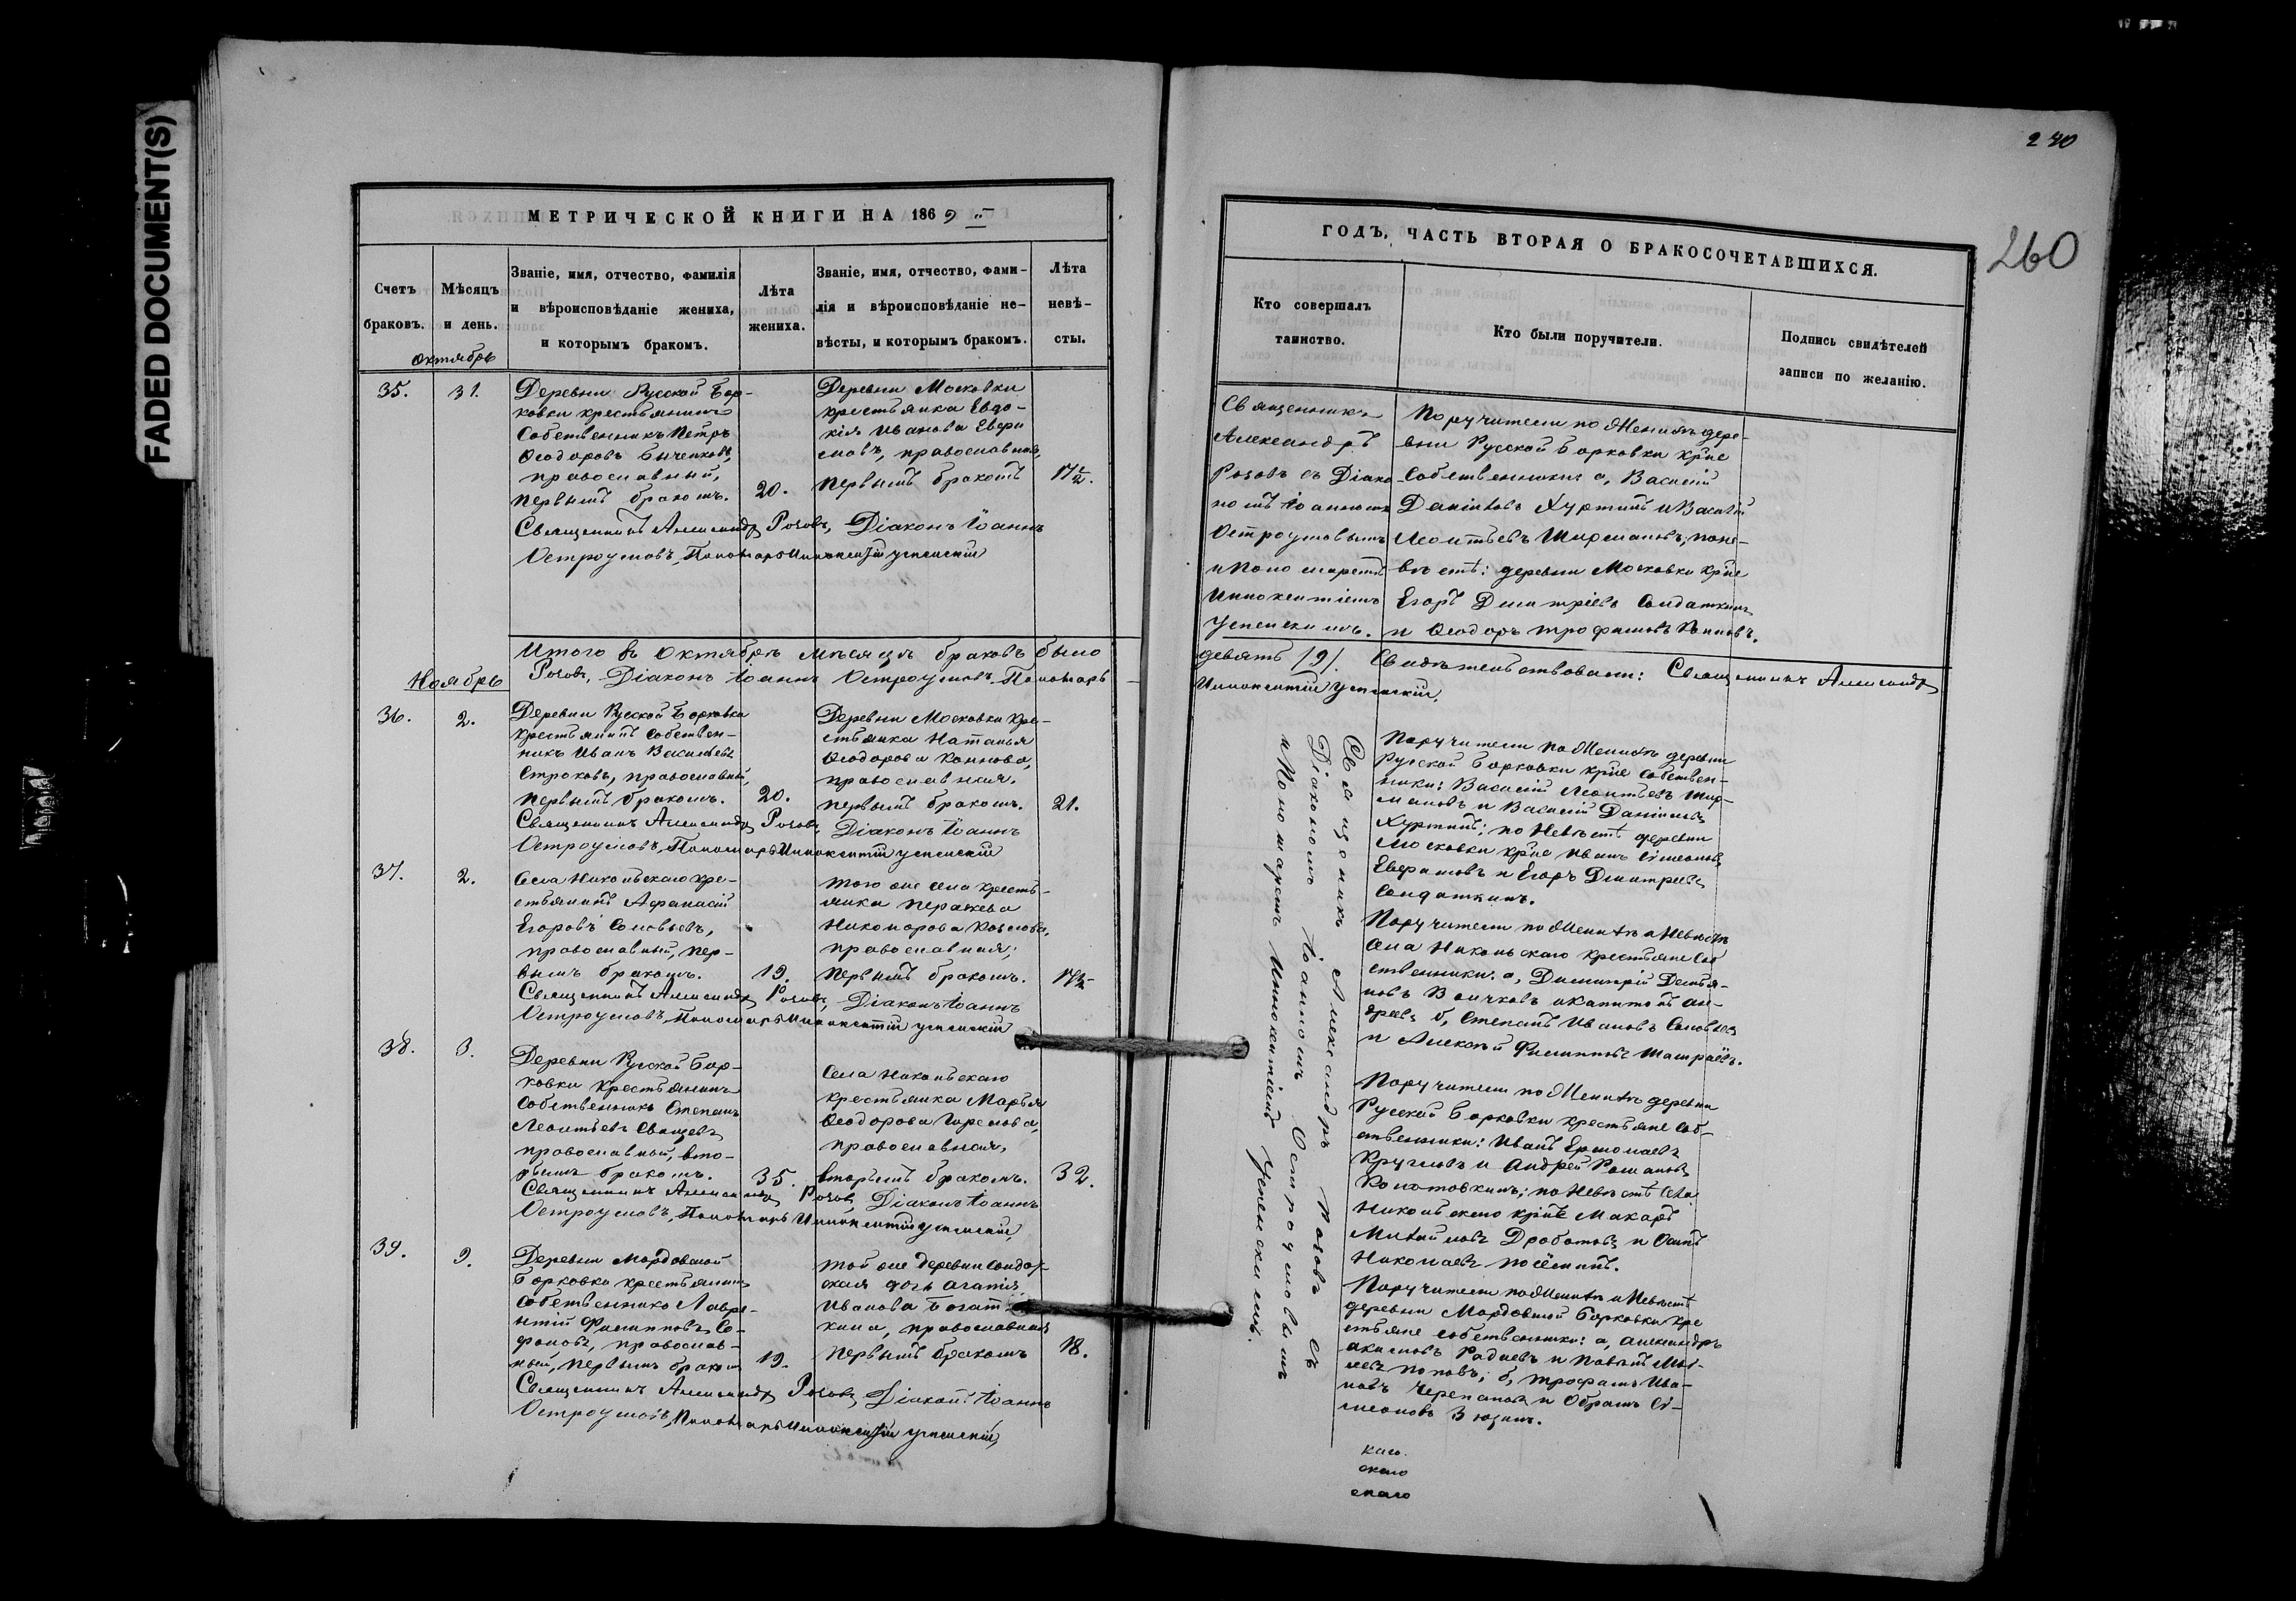 FADED DOCUMENT(S)
МЕТРИЧЕСКОЙ КНИГИ НА 1869
Счетъ браковъ.
Мѣсяцъ и день.
Званіе, имя, отчество, фамилія
и вѣроисповѣданіе жениха,
и которымъ бракомъ.
Лѣта жениха.
Званіе, имя, отчество, фами-
лія и вѣроисповѣданіе не-
вѣсты, и которымъ бракомъ.
Лѣта невѣ-
сты.
Октябрь
35.
31.
Деревни Русской Бор-
ковки крестьянинъ
Собственникъ Петръ
Ѳеодоровъ
православный,
первымъ бракомъ.
20.
Деревни Московки
крестьянка Евдо-
кія Иванова
православная,
первымъ бракомъ
17½.
Священникъ Александръ Розовъ, Діаконъ Іоаннъ
Остроумовъ, Пономарь Иннокентій Успенскій
Итого въ Октябрѣ мѣсяцѣ браковъ было
Ноябрь
Розовъ, Діаконъ Іоаннъ Остроумовъ, Пономарь
36.
2.
Деревни Русской Борковки
крестьянинъ Собствен-
никъ Иванъ Васильевъ
Строковъ, православный,
первымъ бракомъ.
20.
Деревни Московки кре-
стьянка Наталья
Ѳеодорова Коннова,
православная,
первымъ бракомъ.
21.
Священникъ Александръ Розовъ, Діаконъ Іоаннъ
Остроумовъ, Пономарь Иннокентій Успенскій
37.
2.
Села Никольскаго кре-
стьянинъ Афанасій
Егоровъ Соловьевъ,
православный, пер-
вымъ бракомъ.
19.
Того же села кресть-
янка
Никонорова Козлова,
православная,
первымъ бракомъ.
17½
Священникъ Александръ Розовъ, Діаконъ Іоаннъ
Остроумовъ, Пономарь Иннокентій Успенскій
38.
3.
Деревни Русской Бор-
ковки крестьянинъ
Собственникъ Степанъ
Леонтьевъ
православный, вто-
рымъ бракомъ.
35.
Села Никольскаго
крестьянка Марья
Ѳеодорова
православная,
вторымъ бракомъ.
32.
Священникъ Александръ Розовъ, Діаконъ Іоаннъ
Остроумовъ, Пономарь Иннокентій Успенскій
39.
9.
Деревни Мордовской
Борковки крестьянинъ
Собственникъ Лавре-
нтій Филипповъ
православ-
ный, первымъ бракомъ
19.
Той же деревни солдат-
ская дочь Агапія
Иванова
православная
первымъ бракомъ
18.
Священникъ Александръ Розовъ, Діаконъ Іоаннъ
Остроумовъ, Пономарь Иннокентій Успенскій
240
260
ГОДЪ, ЧАСТЬ ВТОРАЯ О БРАКОСОЧЕТАВШИХСЯ.
Кто совершалъ
таинство.
Кто были поручители.
Подпись свидѣтелей
записи по желанію.
Священникъ
Александръ
Розовъ съ Діако-
номъ Іоанномъ
Остроумовымъ
и Пономаремъ
Иннокентіемъ
Успенскимъ.
Поручители по женихѣ дере-
вни Русской Борковки кр̃не
Собственники: а, Василій
Даніиловъ Хуртинъ и Василій
Леонтьевъ Ширмановъ, по не-
вѣстѣ: деревни Московки кр̃не
Егоръ Димитріевъ Солдаткинъ
и Ѳеодоръ Трофимовъ
девять /9/. Свидѣтельствовали: Священникъ Александръ
Иннокентій Успенскій.
Священникъ Александръ Розовъ съ
Діакономъ Іоанномъ Остроумовымъ
и Пономаремъ Иннокентіемъ Успенскимъ.
Поручители по женихѣ деревни
Русской Борковки кр̃не собствен-
ники: Василій Леонтьевъ Шир-
мановъ и Василій Даніиловъ
Хуртинъ; по невѣстѣ деревни
Московки кр̃не Иванъ Симеоновъ
и Егоръ Димитріевъ
Солдаткинъ.
Поручители по женихѣ и невѣстѣ
села Никольскаго крестьяне соб-
ственники: а, Димитрій Демья-
новъ Волчковъ и Капитонъ Ан-
дреевъ б, Степанъ Ивановъ Соловьевъ
и Алексѣй Филипповъ
Поручители по женихѣ деревни
Русской Борковки крестьяне соб-
ственники: Иванъ Ермолаевъ
Кругловъ и Андрей Романовъ
Колотовкинъ; по невѣстѣ села
Никольскаго кр̃не Макаръ
и Осипъ
Николаевъ
Поручители по женихѣ и невѣстѣ
деревни Мордовской Борковки кре-
стьяне собственники: а, Александръ
Акимовъ Радаевъ и
Поповъ; б, Трофимъ Ива-
новъ Черепановъ и Абрамъ Си-
меоновъ Зюзинъ.
каго.
скаго
скаго